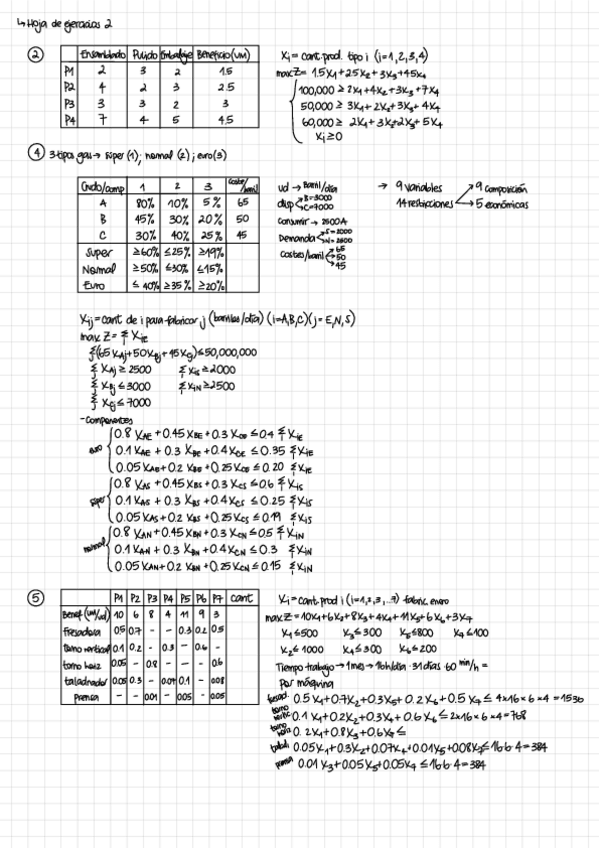 ↳ Hoja de ejercicios 2
② Ensamblado Pulido Embalaje Beneficio (UM)
P1 2 3 2 1.5
P2 4 2 3 2.5
P3 3 3 2 3
P4 7 4 5 4.5
Xi = cant. prod. tipo i (i=1,2,3,4)
max Z = 1.5X1 + 2.5X2 + 3X3 + 4.5X4
100,000 ≥ 2X1 + 4X2 + 3X3 + 7X4
50,000 ≥ 3X1 + 2X2 + 3X3 + 4X4
60,000 ≥ 2X1 + 3X2 + 2X3 + 5X4
Xi ≥ 0
④ 3 tipos gas → súper (1); normal (2); euro (3)
Crudo/comp 1 2 3 Coste/barril
A 80% 10% 5% 65
B 45% 30% 20% 50
C 30% 40% 25% 45
Super ≥60% ≤25% ≥19%
Normal ≥50% ≤30% ≤15%
Euro ≤40% ≥35% ≥20%
ud → Barril/día
disp B=3000 C=7000
Consumir → 2500A
Demanda S=2000 N=2500
Costes/barril 65 50 45
→ 9 variables
14 restricciones → 9 composición
5 económicas
Xij = cant de i para fabricar j (barriles/día) (i=A,B,C) (j=E,N,S)
max Z = Σ XiE
Σ(65XAj + 50XBj + 45XCj) ≤ 50,000,000
Σ XAj ≥ 2500 Σ XiS ≥ 2000
Σ XBj ≤ 3000 Σ XiN ≥ 2500
Σ XCj ≤ 7000
- Componentes
euro
0.8 XAE + 0.45 XBE + 0.3 XCE ≤ 0.4 Σ XiE
0.1 XAE + 0.3 XBE + 0.4 XCE ≤ 0.35 Σ XiE
0.05 XAE + 0.2 XBE + 0.25 XCE ≤ 0.20 Σ XiE
súper
0.8 XAS + 0.45 XBS + 0.3 XCS ≤ 0.6 Σ XiS
0.1 XAS + 0.3 XBS + 0.4 XCS ≤ 0.25 Σ XiS
0.05 XAS + 0.2 XBS + 0.25 XCS ≤ 0.19 Σ XiS
normal
0.8 XAN + 0.45 XBN + 0.3 XCN ≤ 0.5 Σ XiN
0.1 XAN + 0.3 XBN + 0.4 XCN ≤ 0.3 Σ XiN
0.05 XAN + 0.2 XBN + 0.25 XCN ≤ 0.15 Σ XiN
⑤ P1 P2 P3 P4 P5 P6 P7 cant
Benef (UM/ud) 10 6 8 4 11 9 3
fresadora 0.5 0.7 - - 0.3 0.2 0.5
torno vertical 0.1 0.2 - 0.3 - 0.6 -
torno horiz 0.05 - 0.8 - - - 0.6
taladrador 0.05 0.3 - 0.07 0.1 - 0.08
prensa - - 0.01 - 0.05 - 0.05
Xi = cant. prod i (i=1,2,3,...7) fabric. enero
max Z = 10X1 + 6X2 + 8X3 + 4X4 + 11X5 + 6X6 + 3X7
X1 ≤ 500 X3 ≤ 300 X5 ≤ 800 X7 ≤ 100
X2 ≤ 1000 X4 ≤ 300 X6 ≤ 200
Tiempo trabajo → 1 mes → 16h/día · 31 días · 60 min/h =
Por máquina
fresad. 0.5X1 + 0.7X2 + 0.3X5 + 0.2X6 + 0.5X7 ≤ 4×16×6×4 = 1536
torno vertic 0.1X1 + 0.2X2 + 0.3X4 + 0.6X6 ≤ 2×16×6×4 = 768
torno horiz 0.2X1 + 0.8X3 + 0.6X7 ≤
taladr. 0.05X1 + 0.3X2 + 0.07X4 + 0.01X5 + 0.08X7 ≤ 16·6·4 = 384
prensa 0.01X3 + 0.05X5 + 0.05X7 ≤ 16·6·4 = 384